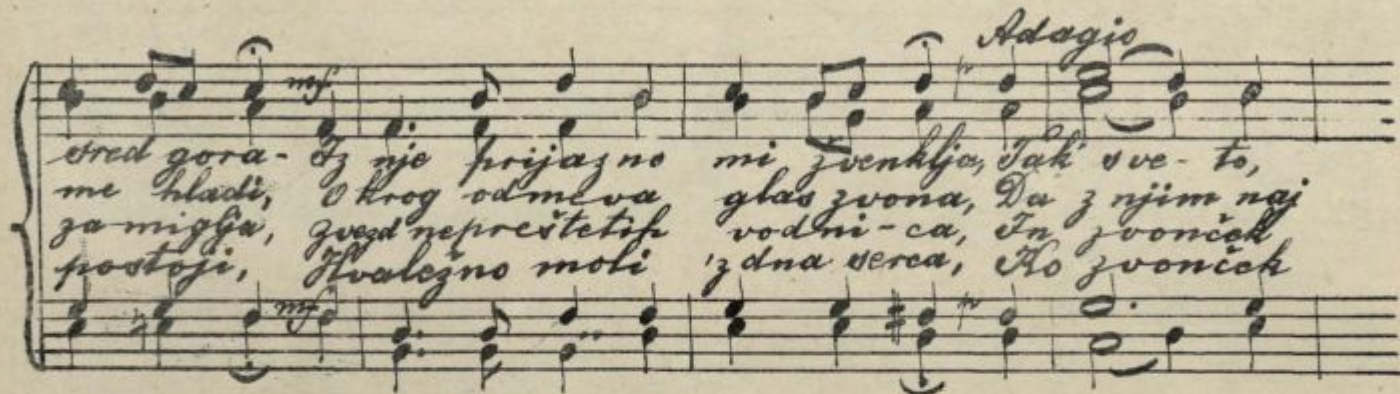 Adagio
mf p
sred gora- Iz nje prijazno mi zvenklja, Tak' sve-to,
me hladi, Okrog odmeva glas zvona, Da z njim naj
za miglja, zvezd nepreštetih vodni-ca, In zvonček
postoji, Hvaležno moli 'z dna serca, Ko zvonček
mf p